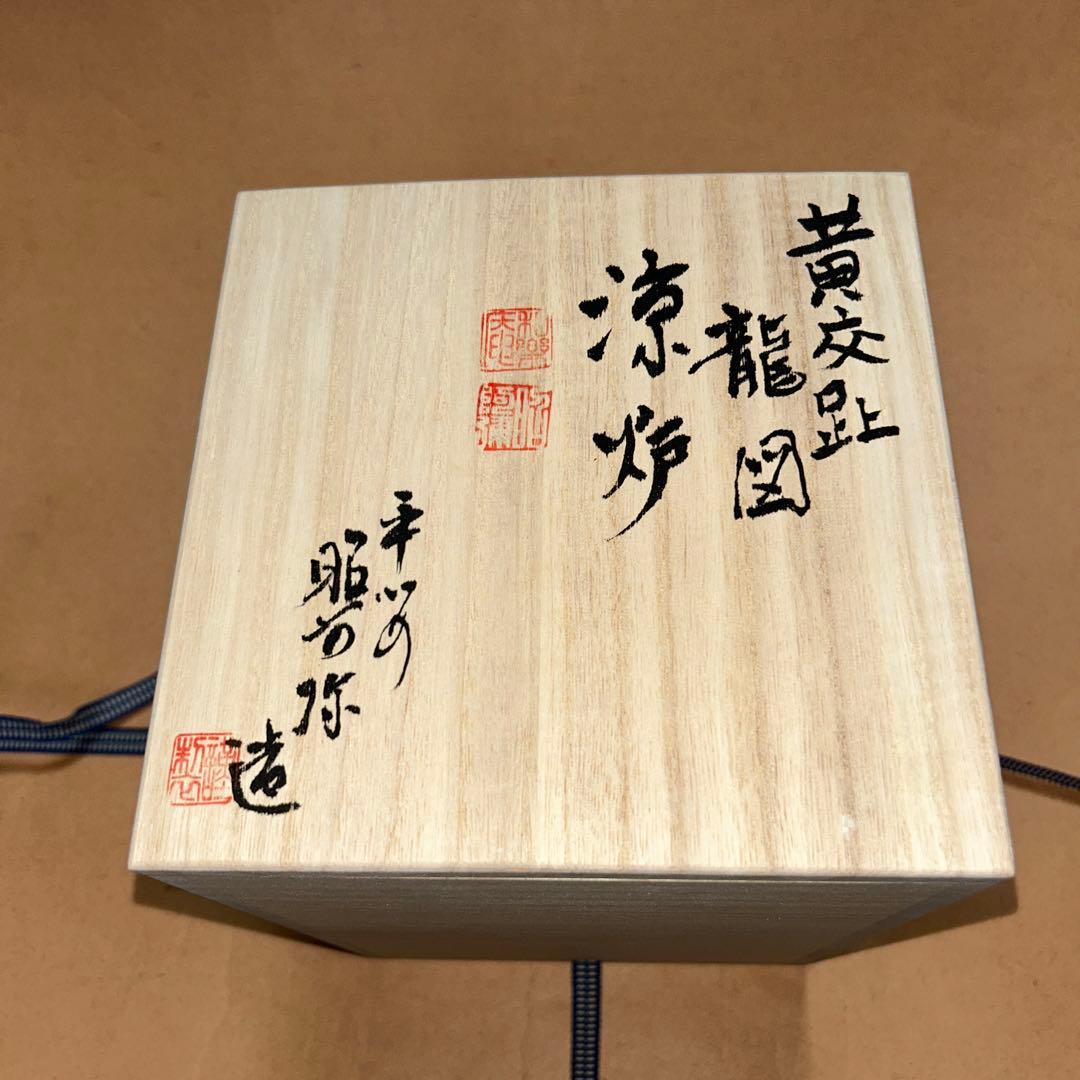 黄交趾
龍図
涼炉
平安
昭阿弥
造